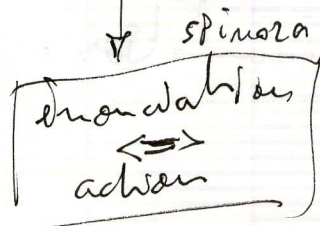 spinoza
énonciation
<=>
action